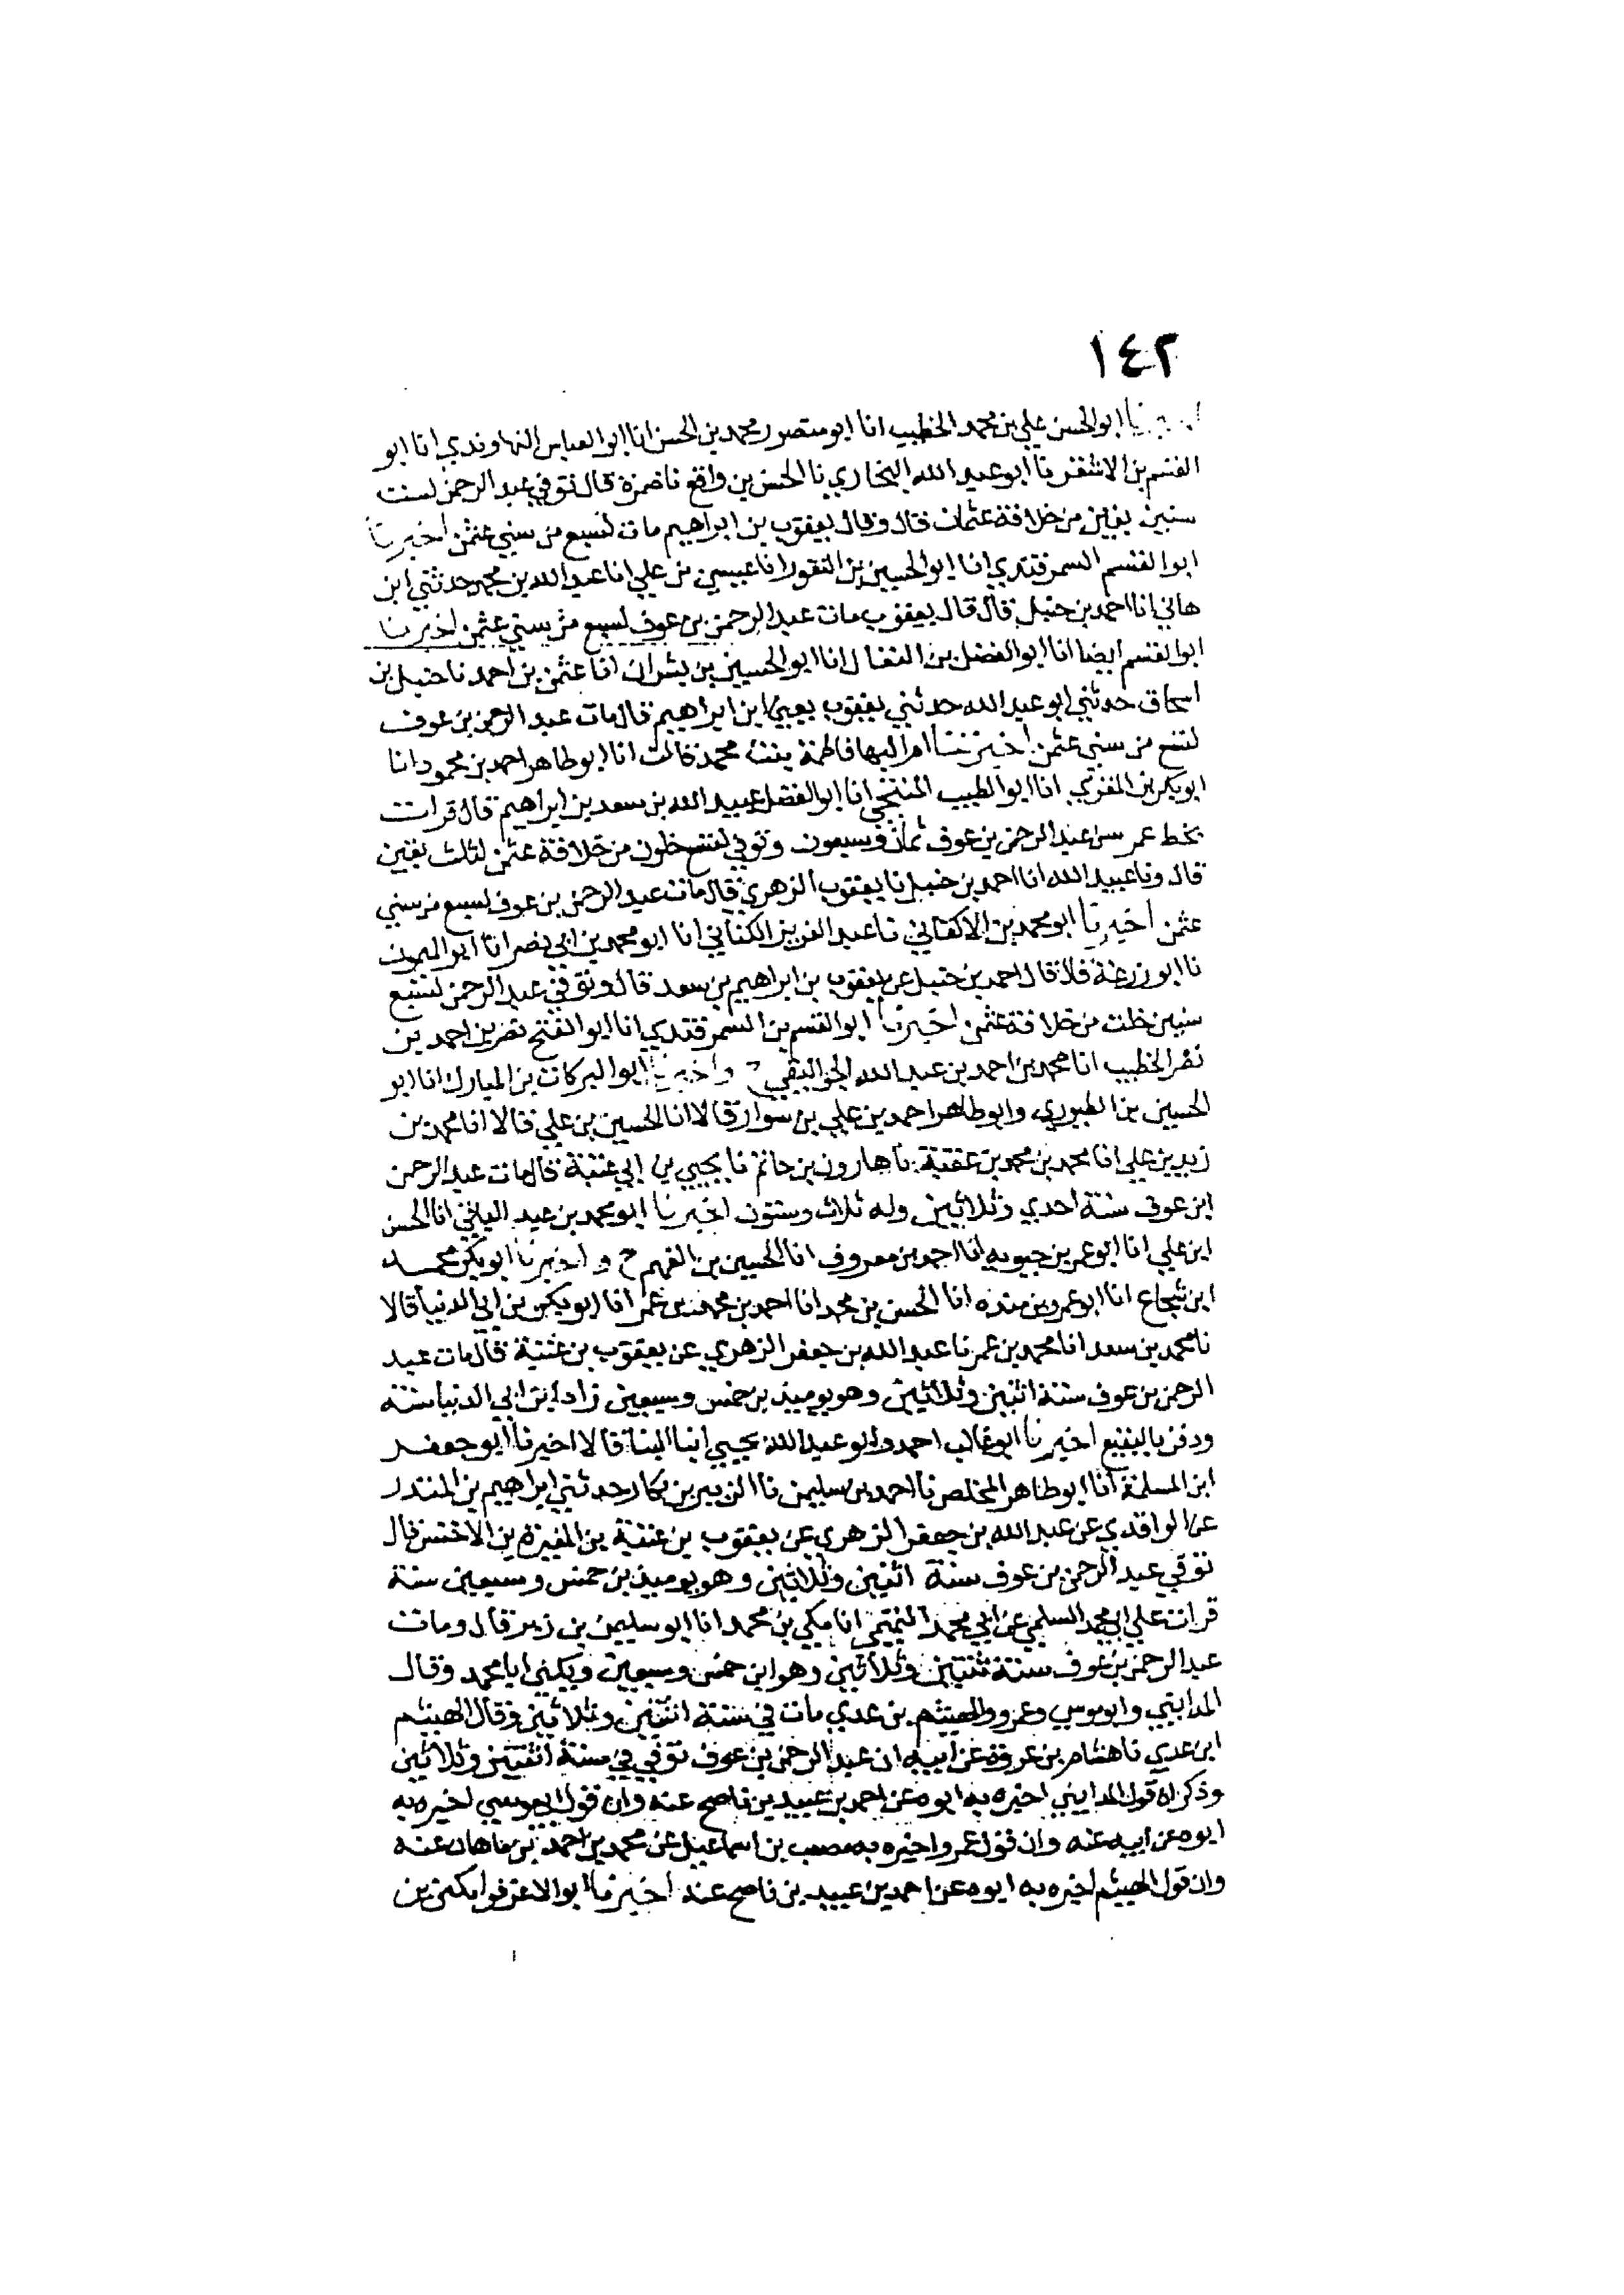 ١٤٢
ابو الحسن علي بن محمد الخطيب انا ابو منصور محمد بن الحسن انا ابو العباس النهاوندي انا ابو
القسم بن الاشقر نا ابو عبد الله البخاري نا الحسن بن واقع نا ضمرة قال توفي عبد الرحمن لست
سنين بقين من خلافة عثمان قال وقال يعقوب بن ابراهيم مات لتسع من سني عثمن اخبرنا
ابو القسم السمرقندي انا ابو الحسين بن النقور انا عيسى بن علي انا عبد الله بن محمد حدثني ابن
هاني انا احمد بن حنبل قال قال يعقوب مات عبد الرحمن بن عوف لسبع من سني عثمن اخبرنا
ابو القسم ايضا انا ابو الفضل بن البقال انا ابو الحسين بن بشران انا عثمن بن احمد نا حنبل بن
اسحاق حدثني ابو عبد الله حدثني يعقوب يعني ابن ابراهيم قال مات عبد الرحمن بن عوف
لتسع من سني عثمن اخبرتنا ام البها فاطمة بنت محمد قالت انا ابو طاهر احمد بن محمود انا
ابو بكر بن المقري انا ابو الطيب المنبجي انا ابو الفضل عبيد الله بن سعد بن ابراهيم قال قرات
بخط عمر سن عبد الرحمن بن عوف ثمان وسبعون وتوفي لتسع خلون من خلافة عثمن لثلث بقين
قال ونا عبيد الله انا احمد بن حنبل نا يعقوب الزهري قال مات عبد الرحمن بن عوف لسبع من سني
عثمن اخبرنا ابو محمد بن الاكفاني نا عبد العزيز الكتاني انا ابو محمد بن ابي نصر انا ابو الميمون
نا ابو زرعة قال قال احمد بن حنبل عن يعقوب بن ابراهيم بن سعد قال وتوفي عبد الرحمن لتسع
سنين خلت من خلافة عثمن اخبرنا ابو القسم بن السمرقندي انا ابو الفتح نصر بن احمد بن
نصر الخطيب انا محمد بن احمد بن عبد الله الجواليقي ح واخبرنا ابو البركات بن المبارك انا ابو
الحسين بن الطيوري وابو طاهر احمد بن علي بن سوار قالا انا الحسين بن علي قالا انا محمد بن
زيد بن علي انا محمد بن محمد بن عقبة نا هارون بن حاتم نا يحيي بن ابي عتبة قال مات عبد الرحمن
ابن عوف سنة احدي وثلاثين وله ثلاث وستون اخبرنا ابو محمد بن عبد الباقي انا الحسن
ابن علي انا ابو عمر بن حيويه انا احمد بن معروف انا الحسين بن الفهم ح واخبرنا ابو بكر محمد
ابن شجاع انا ابو عمرو بن منده انا الحسن بن محمد انا احمد بن محمد بن عمر انا ابو بكر بن ابي الدنيا قالا
نا محمد بن سعد انا محمد بن عمر نا عبد الله بن جعفر الزهري عن يعقوب بن عتبة قال مات عبد
الرحمن بن عوف سنة اثنين وثلاثين وهو يوميذ بن خمس وسبعين زاد ابن ابي الدنيا سنة
ودفن بالبقيع اخبرنا ابو غالب احمد وابو عبد الله يحيي ابنا البنا قالا اخبرنا ابو جعفر
ابن المسلمة انا ابو طاهر المخلص نا احمد بن سليمن نا الزبير بن بكار حدثني ابراهيم بن المنذر
عن الواقدي عن عبد الله بن جعفر الزهري عن يعقوب بن عتبة بن المغيرة بن الاخنس قال
توفي عبد الرحمن بن عوف سنة اثنين وثلاثين وهو يوميذ بن خمس وسبعين سنة
قرات علي ابي محمد السلمي عن ابي محمد التميمي انا مكي بن محمد انا ابو سليمن بن زبر قال ومات
عبد الرحمن بن عوف سنة ثنتين وثلاثين وهو ابن خمس وسبعين ويكني ابا محمد وقال
المدايني وابو موسي وعمرو والهيثم بن عدي مات في سنة اثنين وثلاثين وقال الهيثم
ابن عدي نا هشام بن عروة عن ابيه ان عبد الرحمن بن عوف توفي في سنة اثنتين وثلاثين
وذكر ان قول المدايني اخبره به ابوه عن احمد بن عبيد بن ناصح عنه وان قول ابي موسي اخبره به
ابوه عن ابيه عنه وان قول عمرو اخبره به مصعب بن اسماعيل عن محمد بن احمد بن ماهان عنه
وان قول الهيثم اخبره به ابوه عن احمد بن عبيد بن ناصح عنه اخبرنا ابو الاعز قراتكين بن